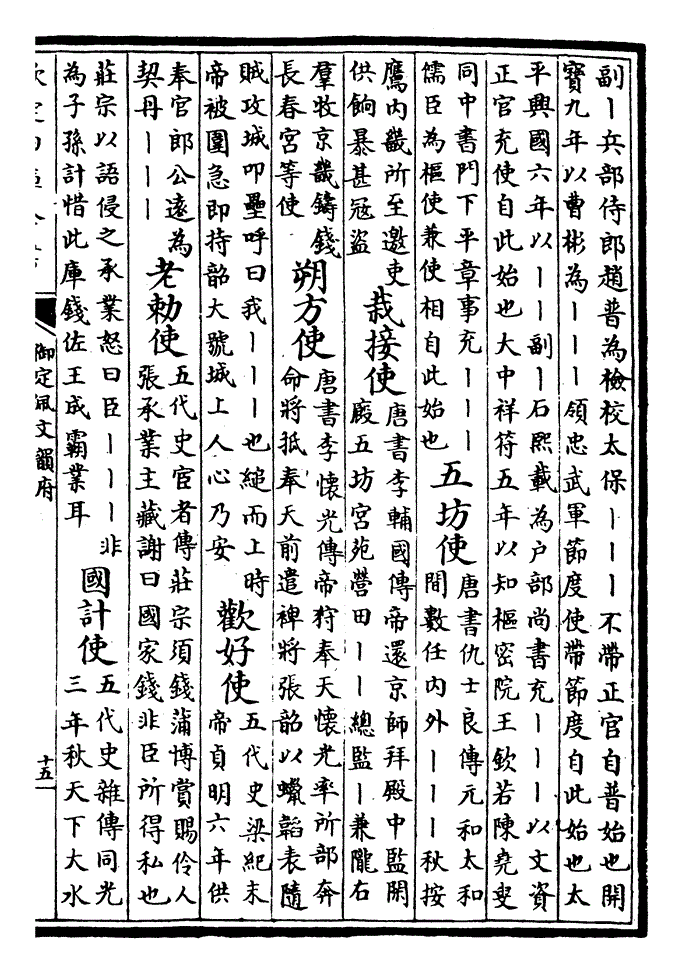 副丨兵部侍郎趙普為檢校太保丨丨丨不帶正官自普始也開
寶九年以曹彬為丨丨丨領忠武軍節度使帶節度自此始也太
平興國六年以丨丨副丨石熙載為户部尚書充丨丨丨以文資
正官充使自此始也大中祥符五年以知樞密院王欽若陳堯叟
同中書門下平章事充丨丨丨
儒臣為樞使兼使相自此始也
五坊使
唐書仇士良傳元和太和
間數任内外丨丨丨秋按
鷹内畿所至邀吏
供餉暴甚冦盜
栽接使
唐書李輔國傳帝還京師拜殿中監閑
廐五坊宫苑營田丨丨總監丨兼隴右
羣牧京畿鑄錢
長春宫等使
朔方使
唐書李懷光傳帝狩奉天懷光率所部奔
命將抵奉天前遣裨將張韶以蠟韜表隨
賊攻城叩壘呼曰我丨丨丨也縋而上時
帝被圍急即持韶大號城上人心乃安
歡好使
五代史梁紀末
帝貞明六年供
奉官郎公遠為
契丹丨丨丨
老勅使
五代史宦者傳莊宗須錢蒲博賞賜伶人
張承業主藏謝曰國家錢非臣所得私也
莊宗以語侵之承業怒曰臣丨丨丨非
為子孫計惜此庫錢佐王成霸業耳
國計使
五代史雜傳同光
三年秋天下大水
御定佩文韻府
十五